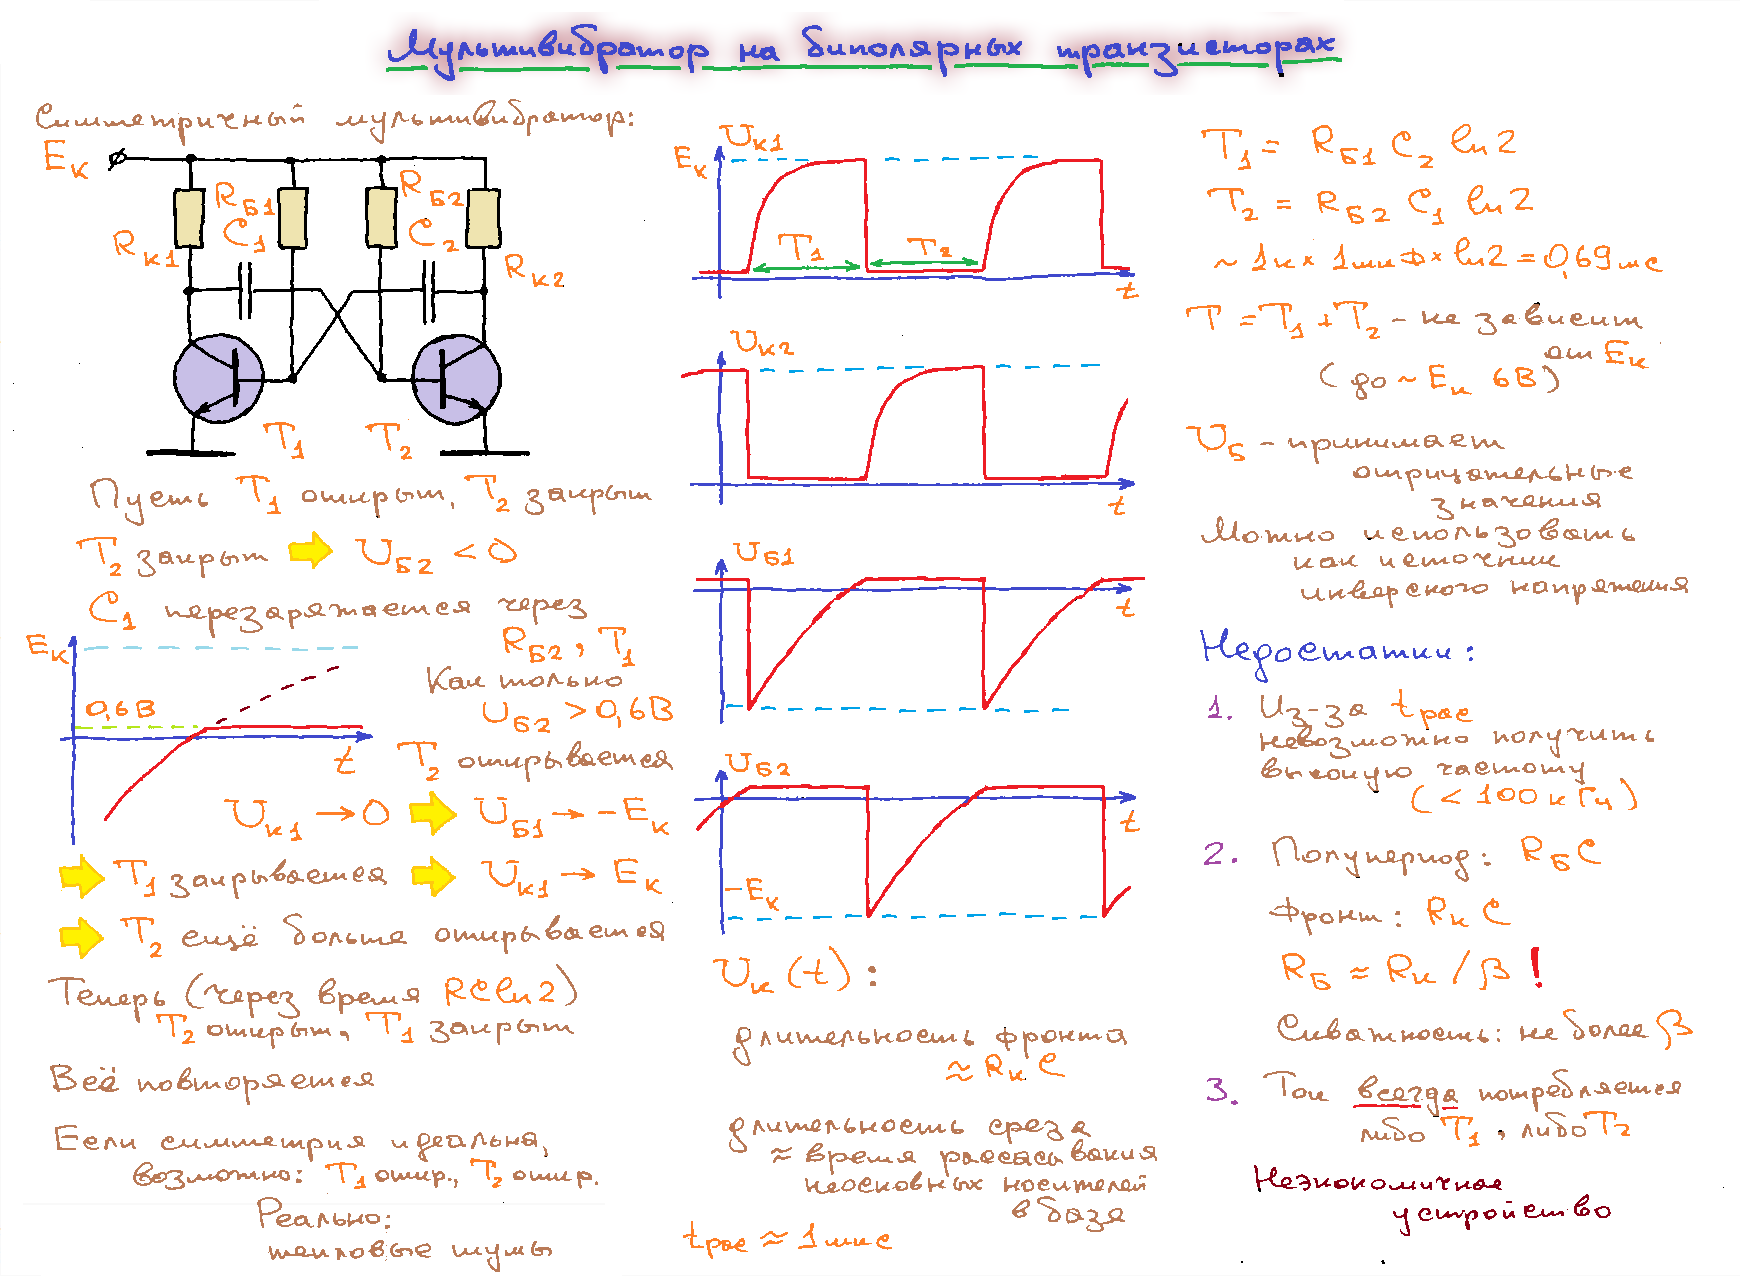 Мультивибратор на биполярных транзисторах
Симметричный мультивибратор:
Eк
Rк1
RБ1
C1
RБ2
C2
Rк2
T1
T2
Пусть T1 открыт, T2 закрыт
T2 закрыт ➡ UБ2 < 0
C1 перезаряжается через
RБ2, T1
Eк
0,6В
t
Как только
UБ2 > 0,6В
T2 открывается
Uк1 → 0 ➡ UБ1 → -Eк
➡ T1 закрывается ➡ Uк1 → Eк
➡ T2 ещё больше открывается
Теперь (через время RC ln 2)
T2 открыт, T1 закрыт
Всё повторяется
Если симметрия идеальна,
возможно: T1 откр., T2 откр.
Реально:
тепловые шумы
Uк1
Eк
T1
T2
t
Uк2
t
UБ1
t
UБ2
t
-Eк
Uк(t):
длительность фронта
≈ RкC
длительность среза
≈ время рассасывания
неосновных носителей
в базе
tрас ≈ 1мкс
T1 = RБ1 C2 ln 2
T2 = RБ2 C1 ln 2
~ 1к × 1мкФ × ln2 = 0,69мс
T = T1 + T2 - не зависит
от Eк
(до ~ Eк 6В)
UБ - принимает
отрицательные
значения
Можно использовать
как источник
инверсного напряжения
Недостатки:
1. Из-за tрас
невозможно получить
высокую частоту
(< 100кГц)
2. Полупериод: RБC
Фронт: RкC
RБ ≈ Rк / β !
Скважность: не более β
3. Ток всегда потребляется
либо T1, либо T2
Неэкономичное
устройство